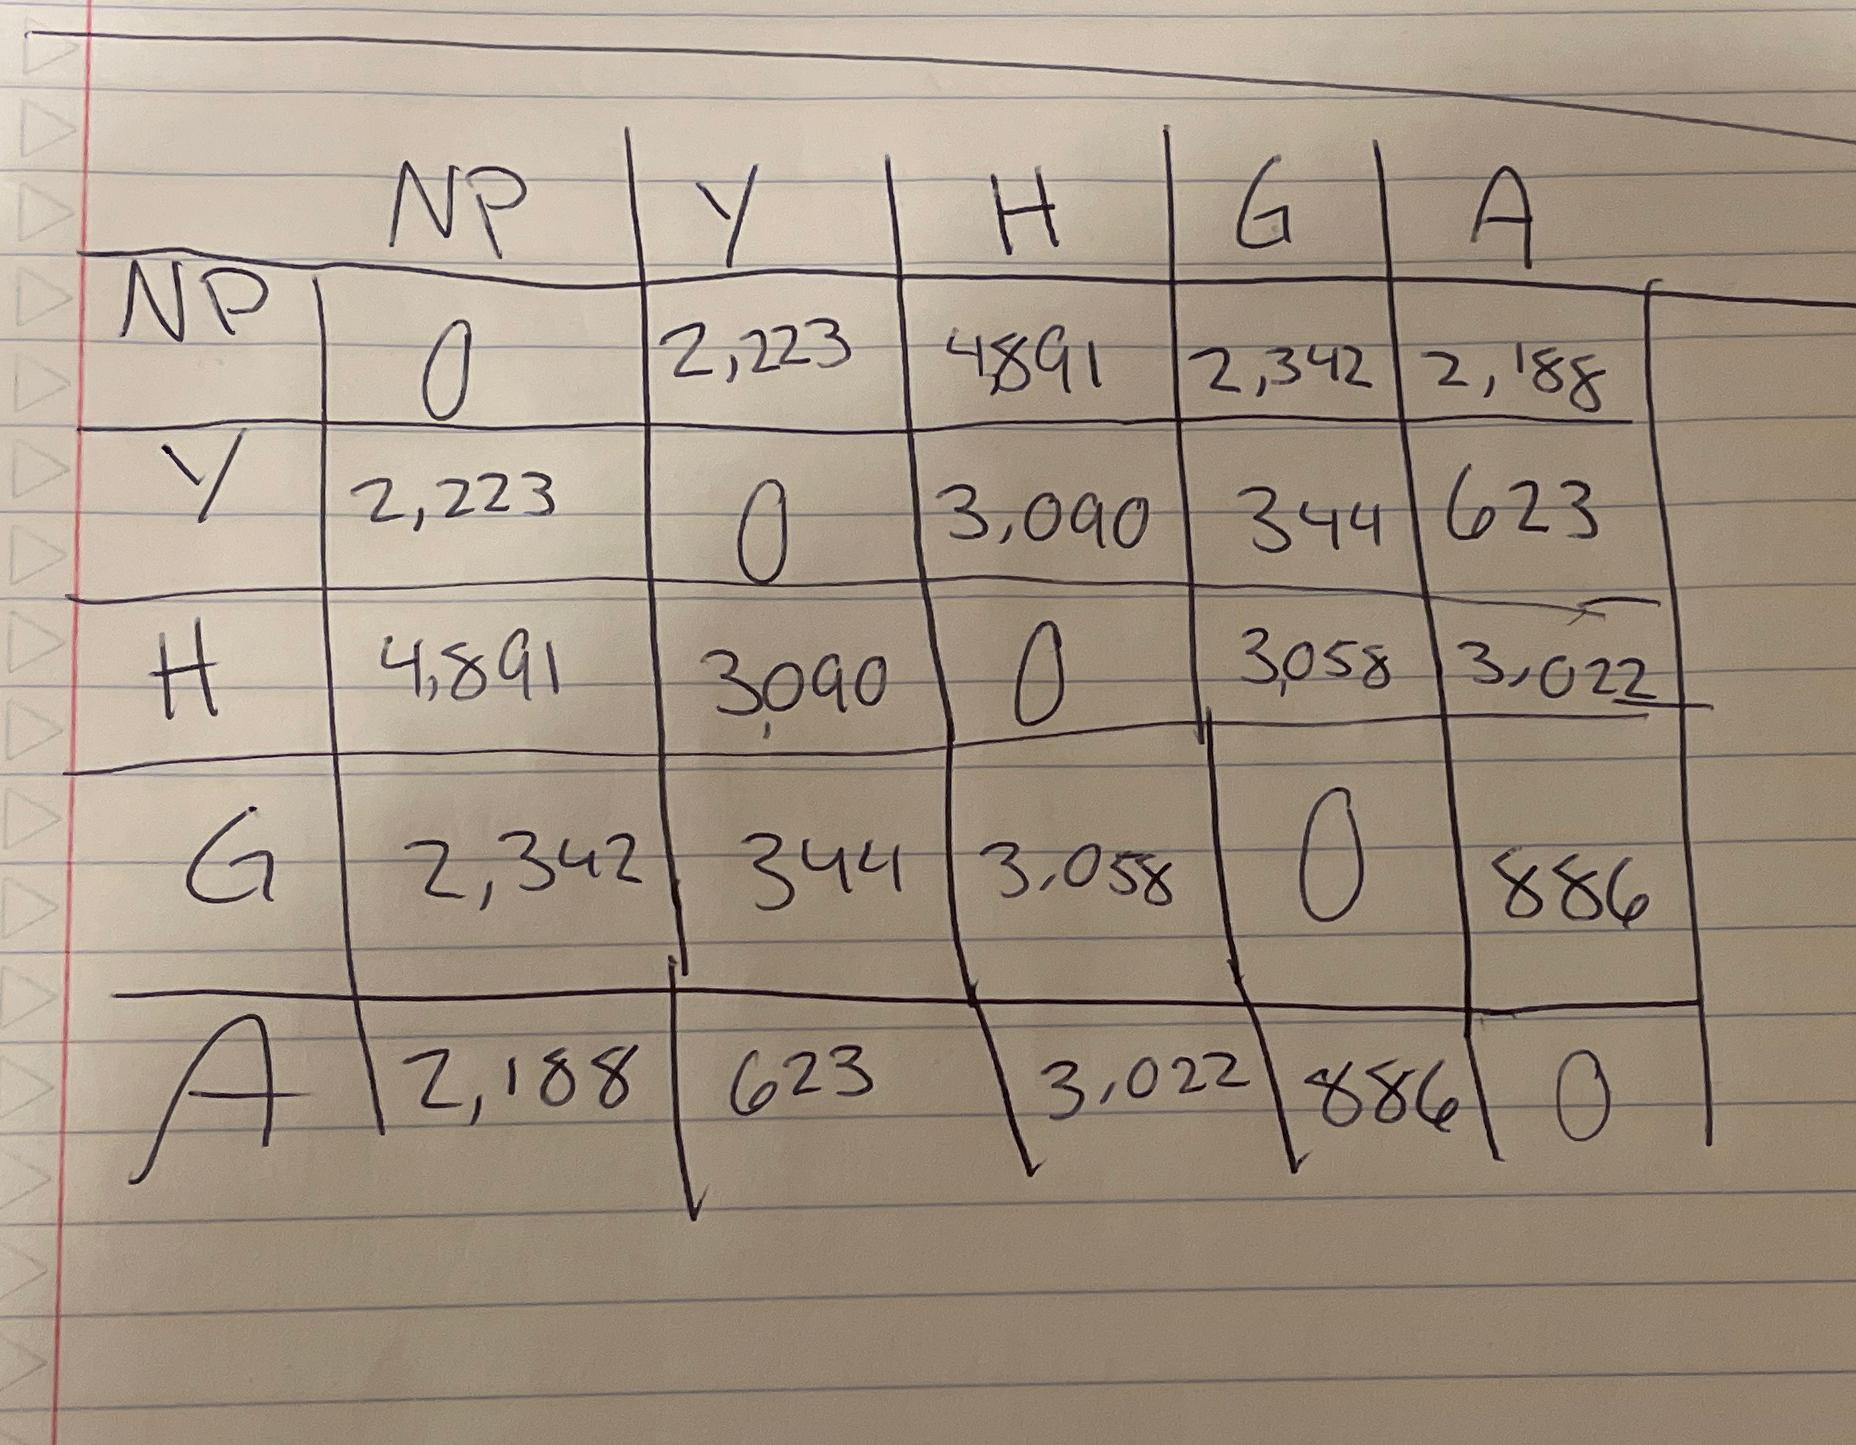 NP Y H G A
NP 0 2,223 4,891 2,342 2,188
Y 2,223 0 3,090 344 623
H 4,891 3,090 0 3,058 3,022
G 2,342 344 3,058 0 886
A 2,188 623 3,022 886 0